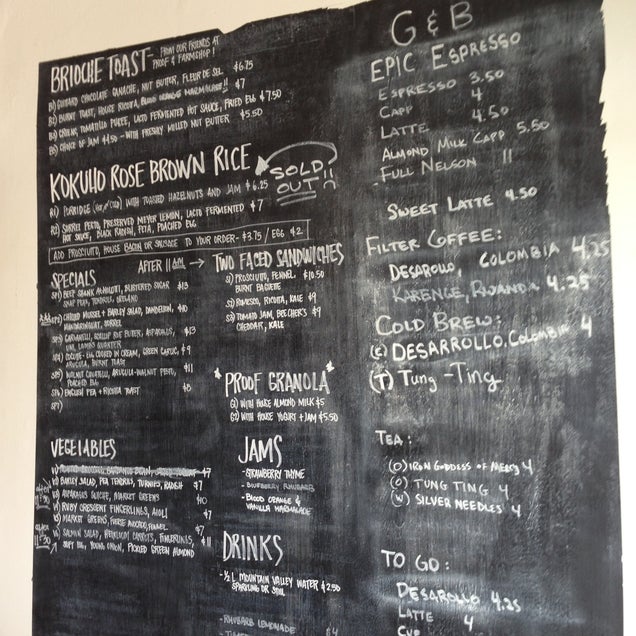 BRIOCHE TOAST - FROM OUR FRIENDS AT
PROOF & FARMSHOP!
B1) GUITTARD CHOCOLATE GANACHE, NUT BUTTER, FLEUR DE SEL $6.75
B2) BURNT TOAST, HOUSE RICOTTA, BLOOD ORANGE MARMALADE!! $7
B3) GREENS, TOMATILLO PUREE, LACTO FERMENTED HOT SAUCE, FRIED EGG $7.50
B4) CHOICE OF JAM $4.50 - WITH FRESHLY MILLED NUT BUTTER $5.50
KOKUHO ROSE BROWN RICE
SOLD
OUT!!
R1) PORRIDGE WITH TOASTED HAZELNUTS AND JAM $6.25
R2) SORREL PESTO, PRESERVED MEYER LEMON, LACTO FERMENTED $7
HOT SAUCE, BLACK RADISH, FETA, POACHED EGG
ADD PROSCIUTTO, HOUSE BACON OR SAUSAGE TO YOUR ORDER - $3.75 / EGG $2
SPECIALS
AFTER 11AM →
SP1) BEEF SHANK BLISTERED SUGAR $13
SNAP PEAS, TENDRILS,
SP2) CHILLED MUSSEL + BARLEY SALAD, DANDELION, $10
SORREL
SP3) SCALLOP ROE BUTTER, ASPARAGUS, $13
UNI, LAMBS QUARTER
SP4) COCOTTE - EGG COOKED IN CREAM, GREEN GARLIC, $9
ARUGULA, BURNT TOAST
SP5) ARUGULA-WALNUT PESTO, $11
POACHED EGG
SP6) ENGLISH PEA + RICOTTA TOAST $8
SP7)
TWO FACED SANDWICHES
S1) PROSCIUTTO, FENNEL, $10.50
BURNT BAGUETTE
S2) ROMESCO, RICOTTA, KALE $9
S3) TOMATO JAM, BEECHER'S $9
CHEDDAR, KALE
"PROOF GRANOLA"
G1) WITH HOUSE ALMOND MILK $5
G2) WITH HOUSE YOGURT + JAM $5.50
VEGETABLES
$7
V2) BARLEY SALAD, PEA TENDRILS, TURNIPS, RADISH $7
V3) ASPARAGUS QUICHE, MARKET GREENS $10
V4) RUBY CRESCENT FINGERLINGS, AIOLI $7
V5) MARKET GREENS, FUERTE AVOCADO, FENNEL $7
V6) SALMON SALAD, HEIRLOOM CARROTS, FINGERLINGS, $11
SOFT EGG, YOUNG ONION, PICKLED GREEN ALMOND
JAMS
- STRAWBERRY THYME
- BLUEBERRY RHUBARB
- BLOOD ORANGE &
VANILLA MARMALADE
DRINKS
- ½ L MOUNTAIN VALLEY WATER $2.50
SPARKLING OR STILL
- RHUBARB LEMONADE $4
G & B
EPIC ESPRESSO
ESPRESSO 3.50
CAPP 4
LATTE 4.50
ALMOND MILK CAPP 5.50
FULL NELSON 11
SWEET LATTE 4.50
FILTER COFFEE:
DESAROLLO, COLOMBIA 4.25
KARENGE, RWANDA 4.25
COLD BREW:
(C) DESARROLLO, COLOMBIA 4
(T) TUNG-TING
TEA:
(O) IRON GODDESS OF MERCY 4
(O) TUNG TING 4
(W) SILVER NEEDLES 4
TO GO:
DESAROLLO 4.25
LATTE 4
CUP